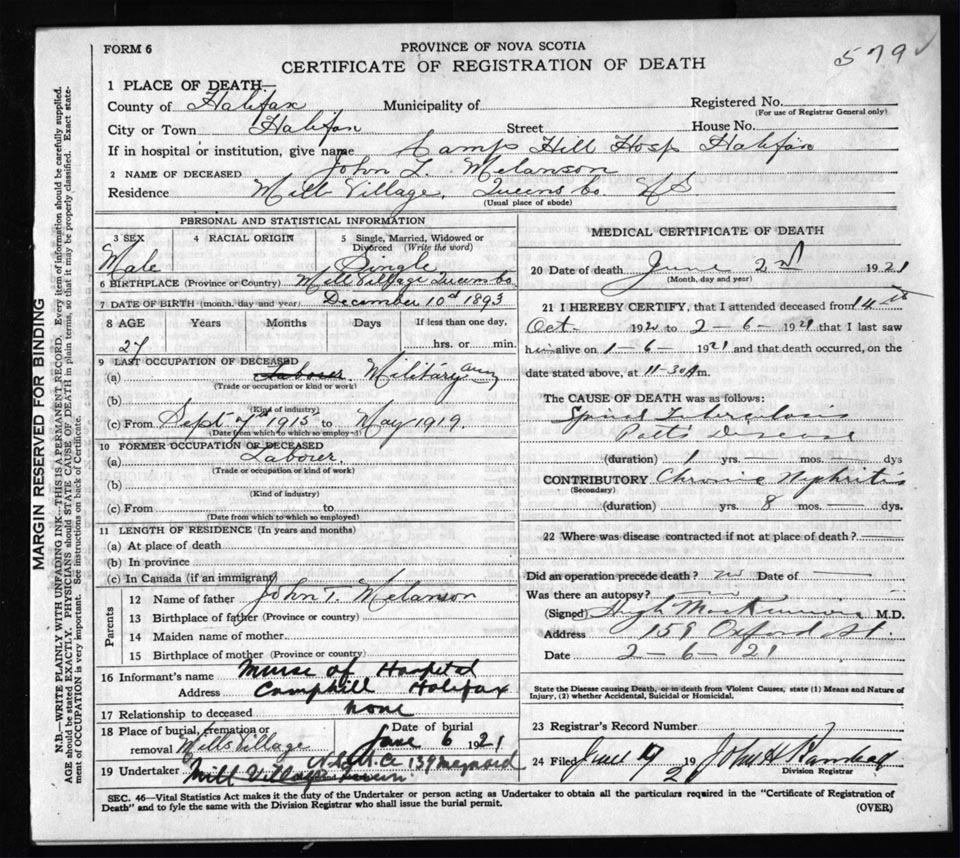 FORM 6
PROVINCE OF NOVA SCOTIA
579
CERTIFICATE OF REGISTRATION OF DEATH
1 PLACE OF DEATH
County of Halifax Municipality of Registered No.
(For use of Registrar General only)
City or Town Halifax Street House No.
If in hospital or institution, give name Camp Hill Hosp Halifax
2 NAME OF DECEASED John L. Melanson
Residence Mill Village, Queens Co. N S
(Usual place of abode)
PERSONAL AND STATISTICAL INFORMATION
3 SEX 4 RACIAL ORIGIN 5 Single, Married, Widowed or Divorced (Write the word)
Male Single
6 BIRTHPLACE (Province or Country) Mill Village Queens Co
7 DATE OF BIRTH (month, day and year) December 10th 1893
8 AGE Years Months Days If less than one day,
27 hrs. or min.
9 LAST OCCUPATION OF DECEASED
(a) Labourer Military
(Trade or occupation or kind of work)
(b)
(Kind of industry)
(c) From Sept 7th 1915 to May 1919.
(Date from which to which so employed)
10 FORMER OCCUPATION OF DECEASED
(a) Labourer.
(Trade or occupation or kind of work)
(b)
(Kind of industry)
(c) From to
(Date from which to which so employed)
11 LENGTH OF RESIDENCE (In years and months)
(a) At place of death
(b) In province
(c) In Canada (if an immigrant)
Parents
12 Name of father John T. Melanson
13 Birthplace of father (Province or country)
14 Maiden name of mother
15 Birthplace of mother (Province or country)
16 Informant's name Nurse of Hospital
Address Camphill Halifax
17 Relationship to deceased none
18 Place of burial, cremation or removal Mills Village
Date of burial June 6 1921
19 Undertaker 139 Maynard
Mill Village
MEDICAL CERTIFICATE OF DEATH
20 Date of death June 2nd 1921
(Month, day and year)
21 I HEREBY CERTIFY, that I attended deceased from 14th
Oct 192 to 2-6-1921 that I last saw
him alive on 1-6-1921 and that death occurred, on the
date stated above, at 11-30 A m.
The CAUSE OF DEATH was as follows:
Spinal Tuberculosis
Potts Disease
(duration) 1 yrs. — mos. — dys
CONTRIBUTORY Chronic Nephritis
(Secondary)
(duration) yrs. 8 mos. — dys.
22 Where was disease contracted if not at place of death? —
Did an operation precede death? no Date of —
Was there an autopsy?
(Signed) Hugh M.D.
Address 159 Oxford St.
Date 2-6-21
State the Disease causing Death, or in death from Violent Causes, state (1) Means and Nature of
Injury, (2) whether Accidental, Suicidal or Homicidal.
23 Registrar's Record Number
24 Filed June 192 John H
Division Registrar
SEC. 46—Vital Statistics Act makes it the duty of the Undertaker or person acting as Undertaker to obtain all the particulars required in the "Certificate of Registration of
Death" and to fyle the same with the Division Registrar who shall issue the burial permit.
(OVER)
MARGIN RESERVED FOR BINDING
N.B.—WRITE PLAINLY WITH UNFADING INK—THIS IS A PERMANENT RECORD. Every item of information should be carefully supplied.
AGE should be stated EXACTLY. PHYSICIANS should STATE CAUSE OF DEATH in plain terms, so that it may be properly classified. Exact state-
ment of OCCUPATION is very important. See instructions on back of Certificate.